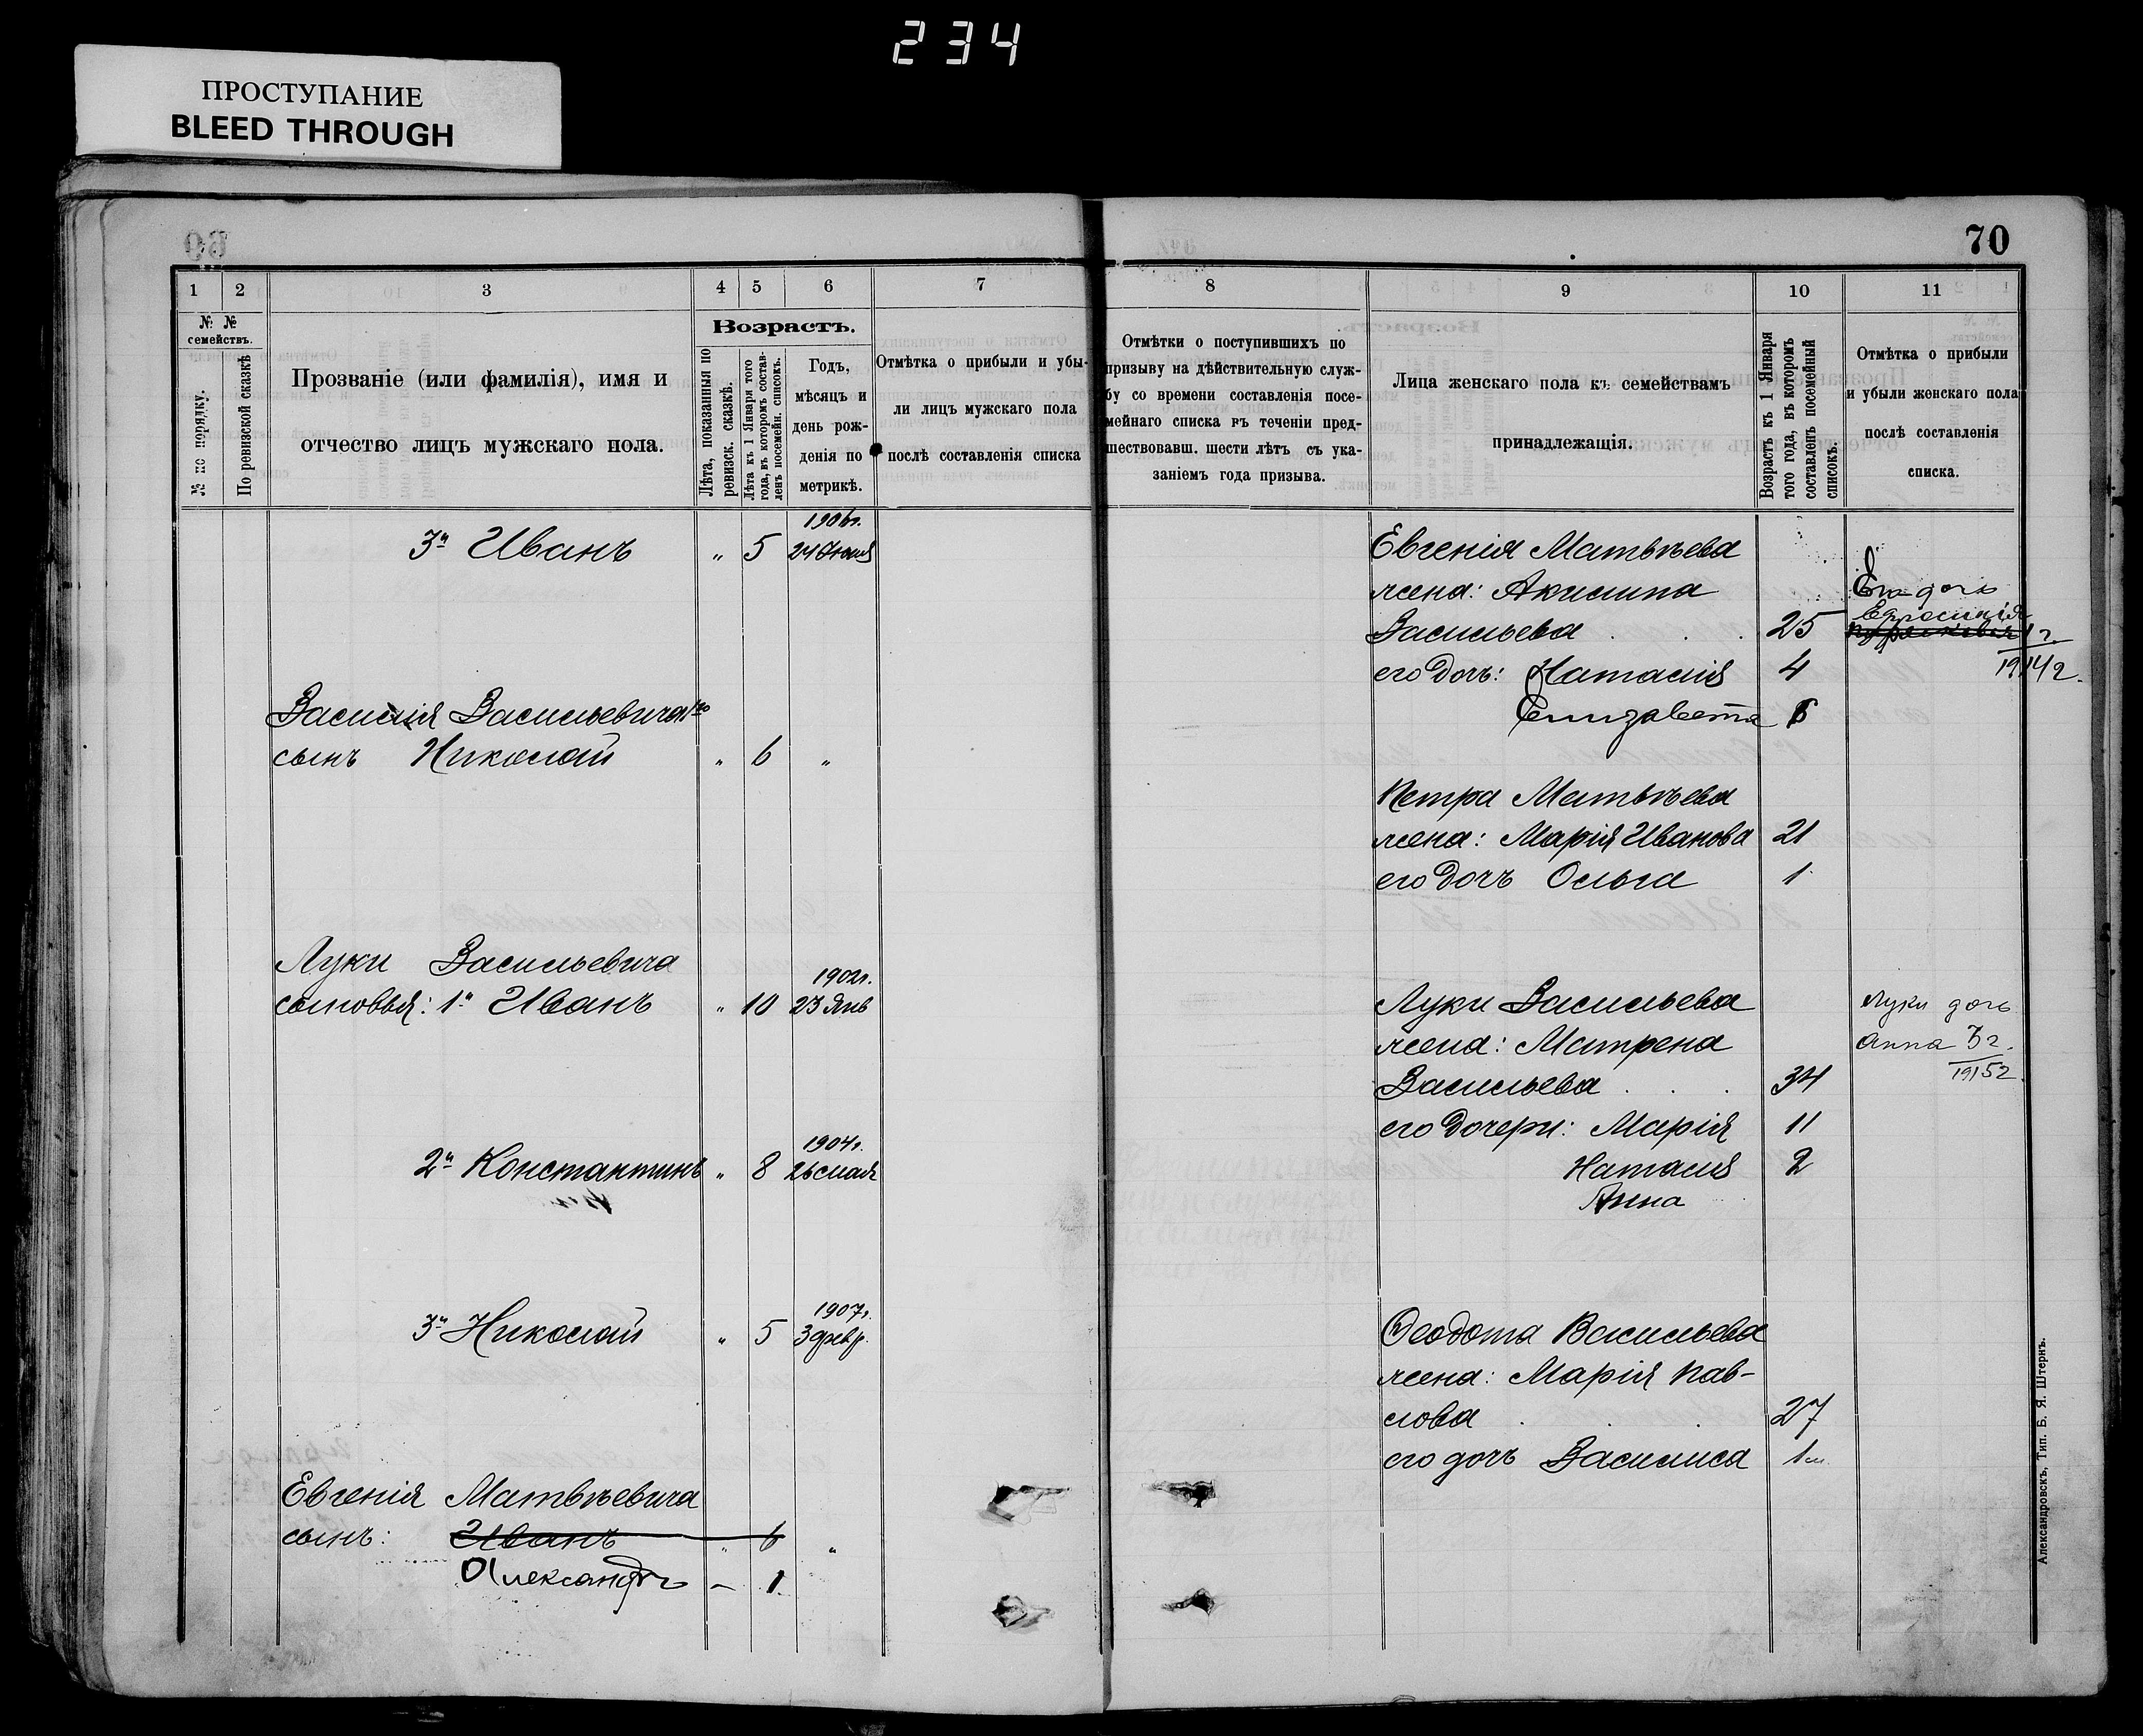 234
ПРОСТУПАНИЕ
BLEED THROUGH
70
1 2 3 4 5 6 7 8 9 10 11
№ №
семействъ.
№ по порядку.
По ревизской сказкѣ
Прозваніе (или фамилія), имя и
отчество лицъ мужскаго пола.
Возрастъ.
Лѣта, показанныя по
ревизск. сказкѣ.
Лѣта къ 1 Января того
года, въ которомъ состав-
ленъ посемейн. списокъ.
Годъ,
мѣсяцъ и
день рож-
денія по
метрикѣ.
Отмѣтка о прибыли и убы-
ли лицъ мужскаго пола
послѣ составленія списка
Отмѣтки о поступившихъ по
призыву на дѣйствительную служ-
бу со времени составленія посе-
мейнаго списка въ теченіи пред-
шествовавш. шести лѣтъ съ ука-
заніемъ года призыва.
Лица женскаго пола къ семействамъ
принадлежащія.
Возрастъ къ 1 Января
того года, въ которомъ
составленъ посемейный
списокъ.
Отмѣтка о прибыли
и убыли женскаго пола
послѣ составленія
списка.
1906г.
3й Иванъ " 5 24 Іюня
Василія Васильевича
сынъ Николай " 6 "
Луки Васильевича
1902г.
сыновья: 1й Иванъ " 10 23 Янв
1904г.
2й Константинъ " 8 26 мая
1907г.
3й Николай " 5 3 февр.
Евгенія Матвѣевича
сынъ: Иванъ " 6 "
Александръ – 1.
Евгенія Матвѣева
жена: Акилина
Васильева 25
его дочь: Наталія 4
Елизавета
Петра Матвѣева
жена: Марія Иванова 21
его дочь Ольга 1
Луки Васильева
жена: Матрена
Васильева 34
его дочери: Марія 11
Наталія 2
Анна
Ѳеодота Васильева
жена: Марія Пав-
лова 27
его дочь Василиса 1м
Ев дочь
Ефросинія
1 г.
1914г.
Луки дочь
Анна 3г.
1915г.
Александровскъ, Тип. Б. Я. Штернъ.